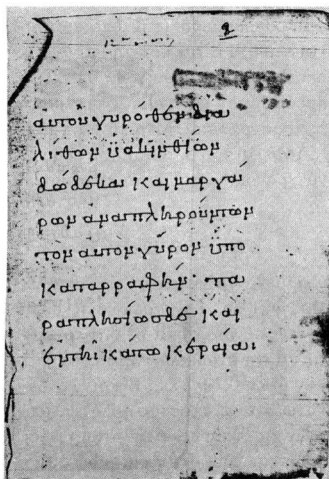 αυτοῦ γυρόθεν δια
λίθων ϋακινθίων
δώδεκα καὶ μαργά
ρων ἀναπληρούντων
τὸν αυτὸν γύρον ϋπο
καταρραφήν· πα
ραπλησίως δὲ καὶ
ἐν τῆι κάτω κεραίαι